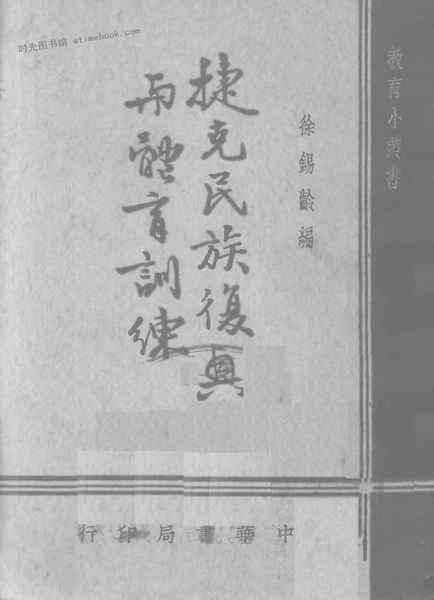 时光图书馆 atimebook.com
教育小叢書
徐錫齡編
捷克民族復興
與體育訓練
中華書局印行